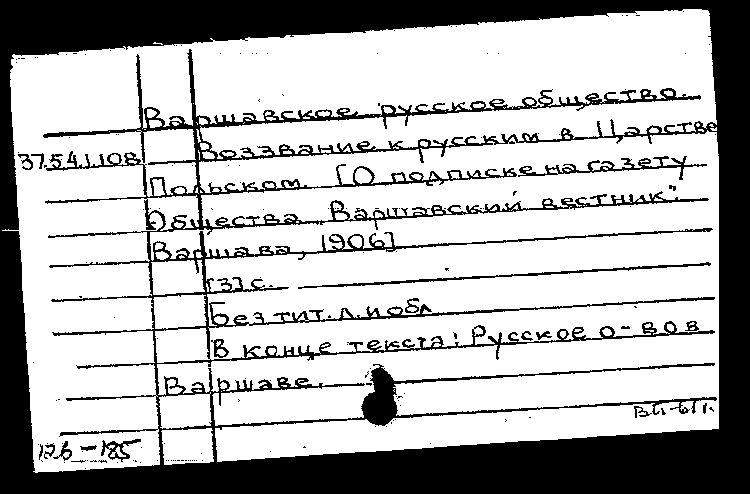 Варшавское русское общество.
37.54.1.108 Воззвание к русским в Царстве
Польском. [О подписке на газету
Общества „Варшавский вестник".
Варшава, 1906]
[3] с.
Без тит. л. и обл
В конце текста: Русское о-во в
Варшаве.
126-185